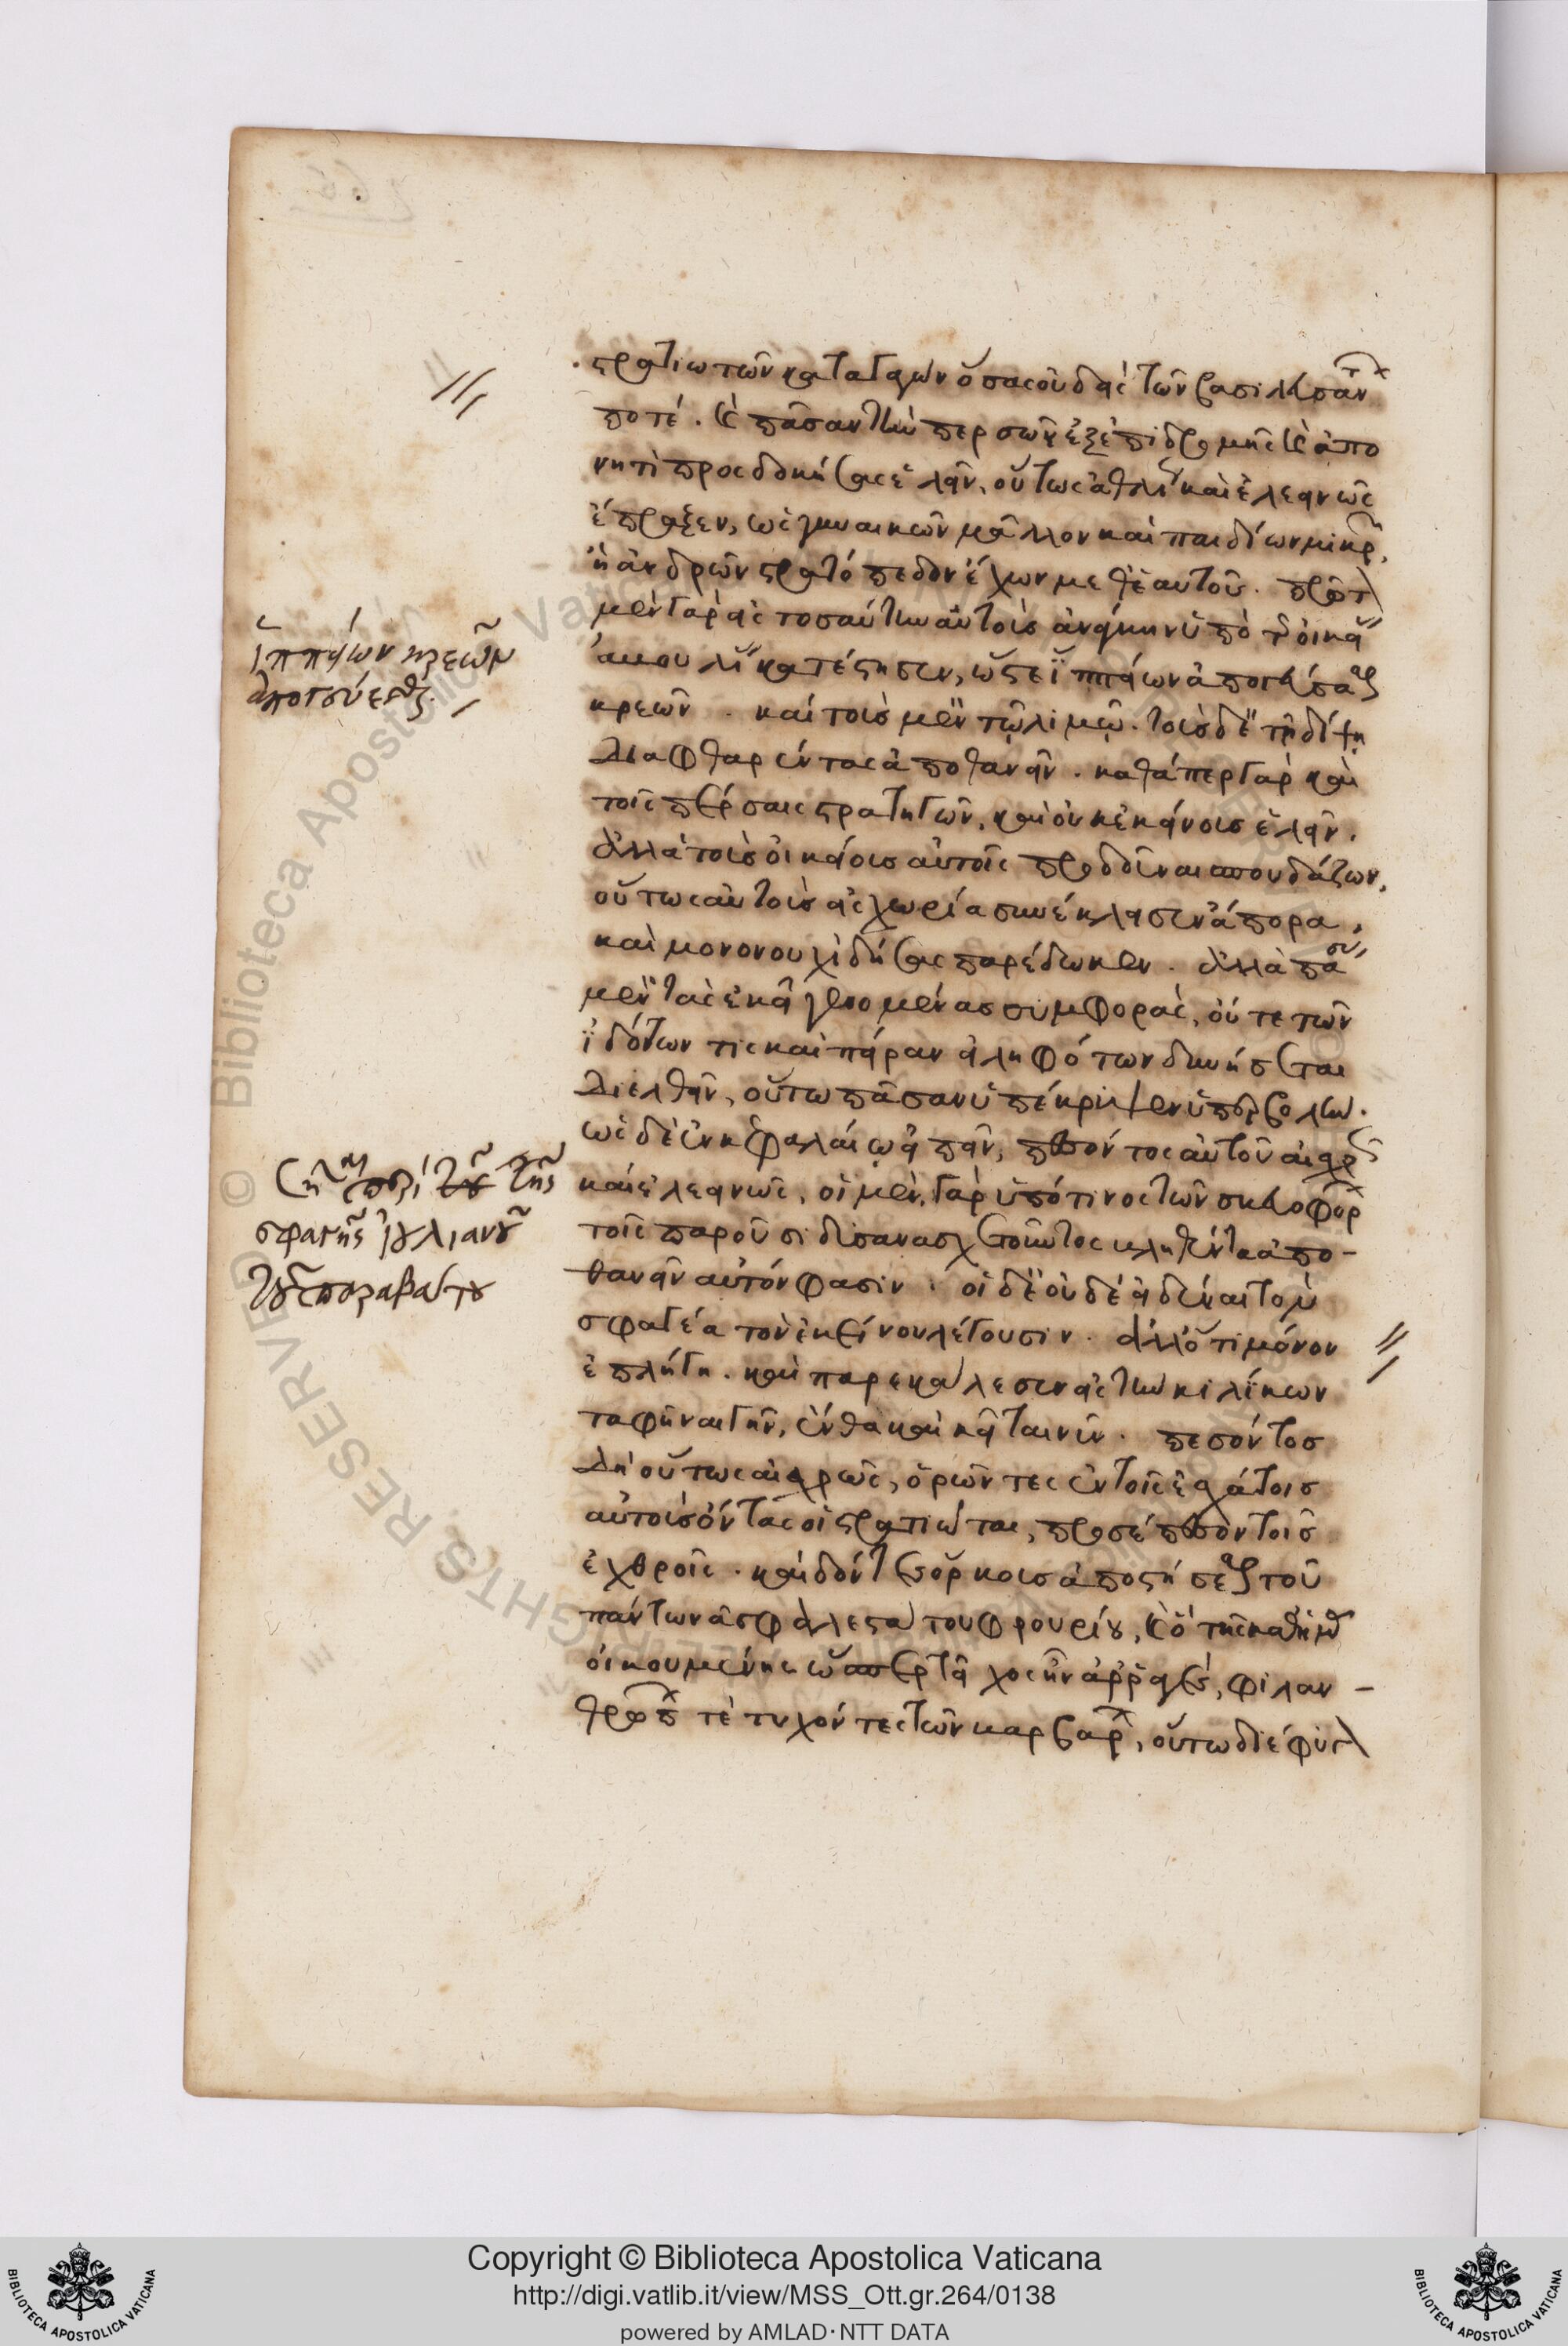 στρατιωτῶν καταγαγὼν ὅσας οὐδεὶς τῶν βασιλευσάντων
ποτέ. καὶ πᾶσαν τὴν περσῶν ἐξ ἐπιδρομῆς καὶ ἀπο
νητὶ προσδοκήσας ἑλεῖν, οὕτως ἀθλίως καὶ ἐλεεινῶς
ἔπραξεν, ὡς γυναικῶν μᾶλλον καὶ παιδίων μικρῶν,
ἢ ἀνδρῶν στρατόπεδον ἔχων μεθ' ἑαυτοῦ. πρῶτον
μὲν γὰρ εἰς τοσαύτην αὐτοὺς ἀνάγκην ὑπὸ τῆς οἰκείας
κατέστησεν, ὥστε ἱππείων ἀπογεύσασθαι
κρεῶν. καὶ τοὺς μὲν τῷ λιμῷ. τοὺς δὲ τῇ δίψῃ
διαφθαρέντας ἀποθανεῖν. καθάπερ γὰρ καὶ
τοῖς πέρσαις στρατηγῶν, καὶ οὐκ ἐκείνους ἑλεῖν.
ἀλλὰ τοὺς οἰκείους αὐτοῖς προδοῦναι σπουδάζων,
οὕτως αὐτοὺς εἰς χωρία συνέκλεισεν ἄπορα,
καὶ μονονουχὶ δήσας παρέδωκεν. ἀλλὰ πάσας
μὲν τὰς ἐκεῖ γενομένας συμφορὰς, οὔτε τῶν
ἰδόντων τις καὶ πεῖραν εἰληφότων δυνήσεται
διελθεῖν, οὕτω πᾶσαν ὑπέκρυψεν ὑπερβολήν.
ὡς δὲ ἐν κεφαλαίῳ εἰπεῖν, πεσόντος αὐτοῦ αἰσχρῶς
καὶ ἐλεεινῶς, οἱ μὲν γὰρ ὑπό τινος τῶν σκευοφόρων
τοῖς παροῦσι δυσανασχετοῦντος πληγέντα ἀπο-
θανεῖν αὐτόν φασιν. οἱ δὲ οὐδὲ εἰδέναι τὸν
σφαγέα τὸν ἐκείνου λέγουσιν. ἀλλ' ὅτι μόνον
ἐπλήγη. καὶ παρεκάλεσεν εἰς τὴν κιλίκων
ταφῆναι γῆν, ἔνθα καὶ κεῖται νῦν. πεσόντος
δὴ οὕτως αἰσχρῶς, ὁρῶντες ἐν τοῖς ἐσχάτοις
αὐτοὺς ὄντας οἱ στρατιῶται, προσέπεσον τοῖς
ἐχθροῖς. καὶ δόντες ὅρκους ἀποστήσεσθαι τοῦ
πάντων ἀσφαλεστάτου φρουρίου, καὶ ὃ τῆς καθ' ἡμᾶς
οἰκουμένης ὥσπερ τεῖχος ἦν ἀρραγὲς, φιλαν-
θρώπων τε τυχόντες τῶν βαρβάρων, οὕτω διέφυγον
ἱππείων κρεῶν
ἀπογεύεσθαι
σημείωσαι περὶ τῆς
σφαγῆς ἰουλιανοῦ
τοῦ παραβάτου
Copyright © Biblioteca Apostolica Vaticana
http://digi.vatlib.it/view/MSS_Ott.gr.264/0138
powered by AMLAD·NTT DATA